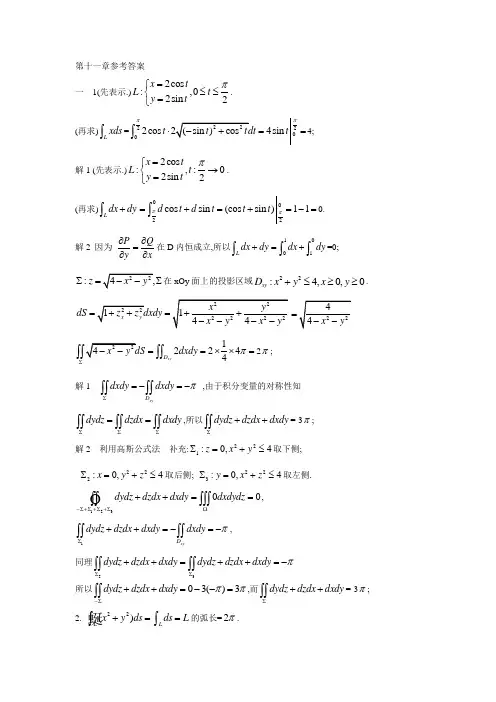 第十一章参考答案
一 1(先表示.) $L:\begin{cases} x=2\cos t \\ y=2\sin t \end{cases}, 0\le t\le \frac{\pi}{2}$.
(再求) $\int_L xds = \int_0^{\frac{\pi}{2}} 2\cos t\cdot 2\sqrt{(-\sin t)^2+\cos^2 t}dt = 4\sin t\Big|_0^{\frac{\pi}{2}} = 4$;
解1 (先表示.) $L:\begin{cases} x=2\cos t \\ y=2\sin t \end{cases}, t:\frac{\pi}{2}\to 0$.
(再求) $\int_L dx+dy = \int_{\frac{\pi}{2}}^0 d\cos t+d\sin t = (\cos t+\sin t)\Big|_{\frac{\pi}{2}}^0 = 1-1=0$.
解2 因为 $\frac{\partial P}{\partial y}=\frac{\partial Q}{\partial x}$ 在D内恒成立,所以 $\int_L dx+dy=\int_0^1 dx+\int_1^0 dy=0$;
$\Sigma: z=\sqrt{4-x^2-y^2},\Sigma$ 在xOy面上的投影区域 $D_{xy}: x^2+y^2\le 4, x\ge 0, y\ge 0$.
$dS=\sqrt{1+z_x^2+z_y^2}dxdy=\sqrt{1+\frac{x^2}{4-x^2-y^2}+\frac{y^2}{4-x^2-y^2}}=\sqrt{\frac{4}{4-x^2-y^2}}$
$\iint_\Sigma \sqrt{4-x^2-y^2}dS=\iint_{D_{xy}} 2dxdy=2\times\frac{1}{4}\times 4\pi=2\pi$;
解1 $\iint_\Sigma dxdy=-\iint_{D_{xy}} dxdy=-\pi$ ,由于积分变量的对称性知
$\iint_\Sigma dydz=\iint_\Sigma dzdx=\iint_\Sigma dxdy$,所以 $\iint_\Sigma dydz+dzdx+dxdy=3\pi$;
解2 利用高斯公式法 补充: $\Sigma_1: z=0, x^2+y^2\le 4$ 取下侧;
$\Sigma_2: x=0, y^2+z^2\le 4$ 取后侧; $\Sigma_3: y=0, x^2+z^2\le 4$ 取左侧.
$\oiint_{-\Sigma+\Sigma_1+\Sigma_2+\Sigma_3} dydz+dzdx+dxdy=\iiint_\Omega 0dxdydz=0$,
$\iint_{\Sigma_1} dydz+dzdx+dxdy=-\iint_{D_{xy}} dxdy=-\pi$,
同理 $\iint_{\Sigma_2} dydz+dzdx+dxdy=\iint_{\Sigma_3} dydz+dzdx+dxdy=-\pi$
所以 $\iint_{-\Sigma} dydz+dzdx+dxdy=0-3(-\pi)=3\pi$,而 $\iint_\Sigma dydz+dzdx+dxdy=3\pi$;
2. $\oint_L (x^2+y^2)ds=\oint_L ds=L$ 的弧长= $2\pi$.